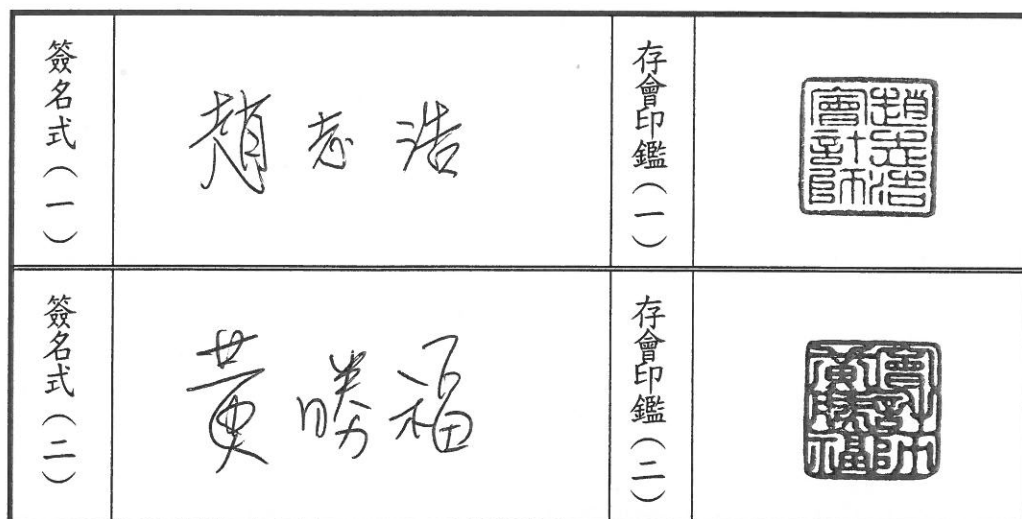 簽名式(一)
趙志浩
存會印鑑(一)
趙志浩
會計師
簽名式(二)
黃勝福
存會印鑑(二)
會計師
黃勝福